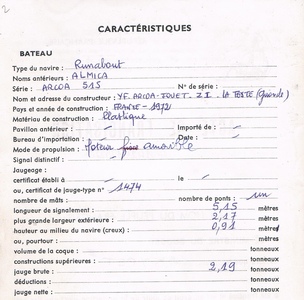 2
CARACTÉRISTIQUES
BATEAU
Type du navire : Runabout
Noms antérieurs : ALMICA
Série : ARCOA 515 N° de série :
Nom et adresse du constructeur : ARCOA - JOUET. Z.I. LA TESTE (Gironde)
Pays et année de construction : FRANCE - 1972
Matériau de construction : Plastique
Pavillon antérieur : Importé de :
Bureau d'importation : Date :
Mode de propulsion : Moteur amovible
Signal distinctif :
Jaugeage :
certificat établi à le
ou, certificat de jauge-type n° 1474
nombre de mâts : nombre de ponts : un
longueur de signalement : 5,15 mètres
plus grande largeur extérieure : 2,17 mètres
hauteur au milieu du navire (creux) : 0,91 mètres
ou, pourtour : mètres
volume de la coque : tonneaux
constructions supérieures : tonneaux
jauge brute : 2,19 tonneaux
déductions : tonneaux
jauge nette : tonneaux